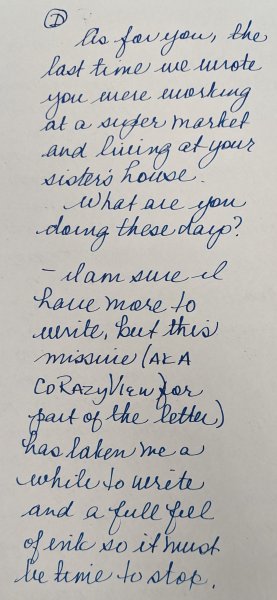 I
As for you, the
last time we wrote
you were working
at a super market
and living at your
sister's house.
What are you
doing these days?
- I am sure I
have more to
write, but this
missive (AKA
for
part of the letter)
has taken me a
while to write
and a full feel
of ink so it must
be time to stop.